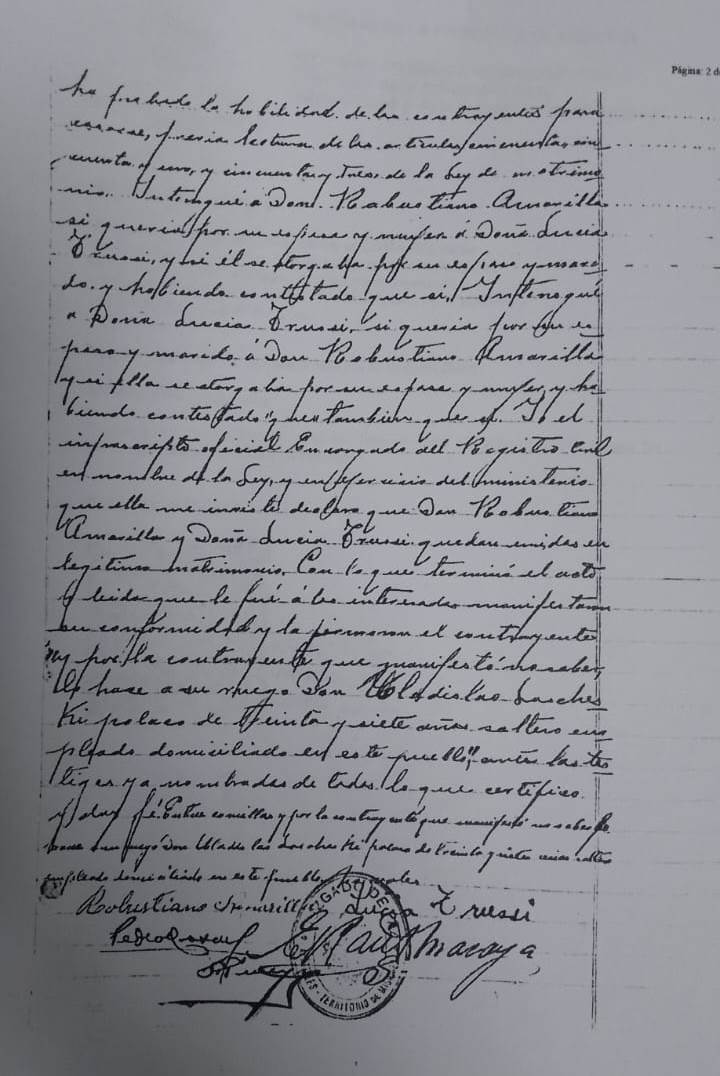 Página: 2 d
ha probado la habilidad de los contrayentes para
casarse, previa lectura de los artículos cincuenta, cin
cuenta y uno, y cincuenta y tres de la Ley de matrimo
nio. Interrogué a Don Robustiano Amarilla
si quería por su esposa y mujer á Doña Lucia
Trussi, y si él se otorgaba por su esposo y mari
do, y habiendo contestado que si, Interrogué
a Doña Lucia Trussi, si queria por su es
poso y marido á Don Robustiano Amarilla
y si ella se otorgaba por su esposa y mujer, y ha
biendo contestado que tambien que si. Yo el
infrascripto oficial Encargado del Registro Civil
en nombre de la Ley, y en ejercicio del ministerio
que ella me inviste declaro que Don Robustiano
Amarilla y Doña Lucia Trussi quedan unidos en
legitimo matrimonio. Con lo que terminó el acto
y leida que le fué á los interesados manifestaron
su conformidad y la firmaron el contrayente
"y por la contrayente que manifestó no saber,
lo hace a su ruego Don Uladislao
Ki polaco de treinta y siete años soltero em
pleado domiciliado en este pueblo", antes los tes
tigos ya nombrados de todos lo que certifico
y doy fé. Entre comillas y por la contrayente que manifestó no saber lo
hace a su ruego Don Uladislao ki polaco de treinta y siete años soltero
empleado domiciliado en este pueblo no vale
Robustiano Amarilla Lucia Trussi
Pedro Amaroya
JUZGADO DE TERRITORIO DE